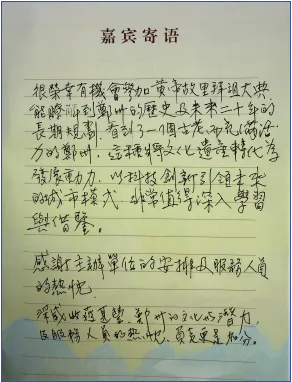 嘉宾寄语
很榮幸有機會參加黃帝故里拜祖大典
能瞭解到鄭州的歷史及未來二十年的
長期規劃,看到了一個古老而充滿活
力的鄭州,這種將文化遺產轉化為
發展動力,以科技創新引領未來
的城市模式,非常值得深入學習
與借鑒。
感謝主辦單位的安排及服務人員
的熱忱
深感此趟,鄭州的文化的潛力,
及服務人員的熱忱,真是加分。